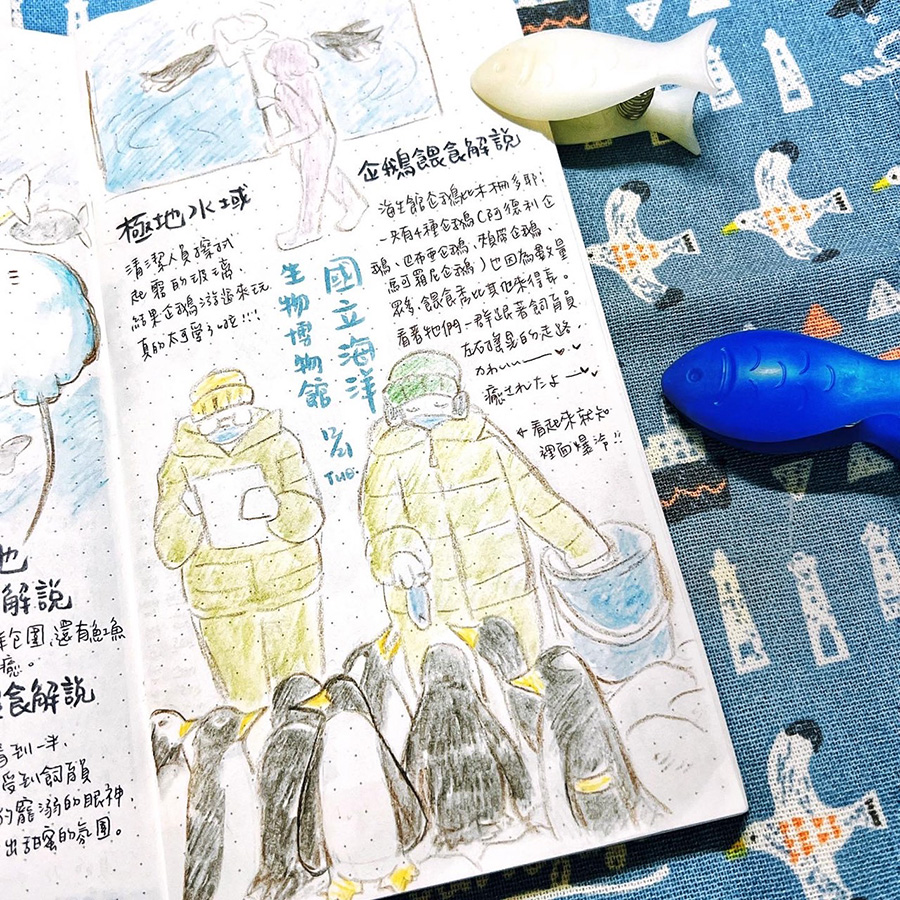 極地水域
清潔人員擦拭
起霧的玻璃,
結果企鵝游過來玩
真的太可愛了啦!!!
企鵝餵食解說
海生館企鵝比木柵多耶!
一共有4種企鵝(阿德利企
鵝、巴布亞企鵝、頰帶企鵝、
馬可羅尼企鵝)也因為數量
眾多,餵食秀比其他來得長。
看著牠們一群跟著飼育員
左右搖晃的走路..
かわいい
癒されたよ
←看起來就知
裡面爆冷!!
國立海洋
生物博物館
TUE.
地
解說
包圍,還有魟魚
癒。
食解說
看到一半,
受到飼育員
的寵溺的眼神,
出甜蜜的氛圍。